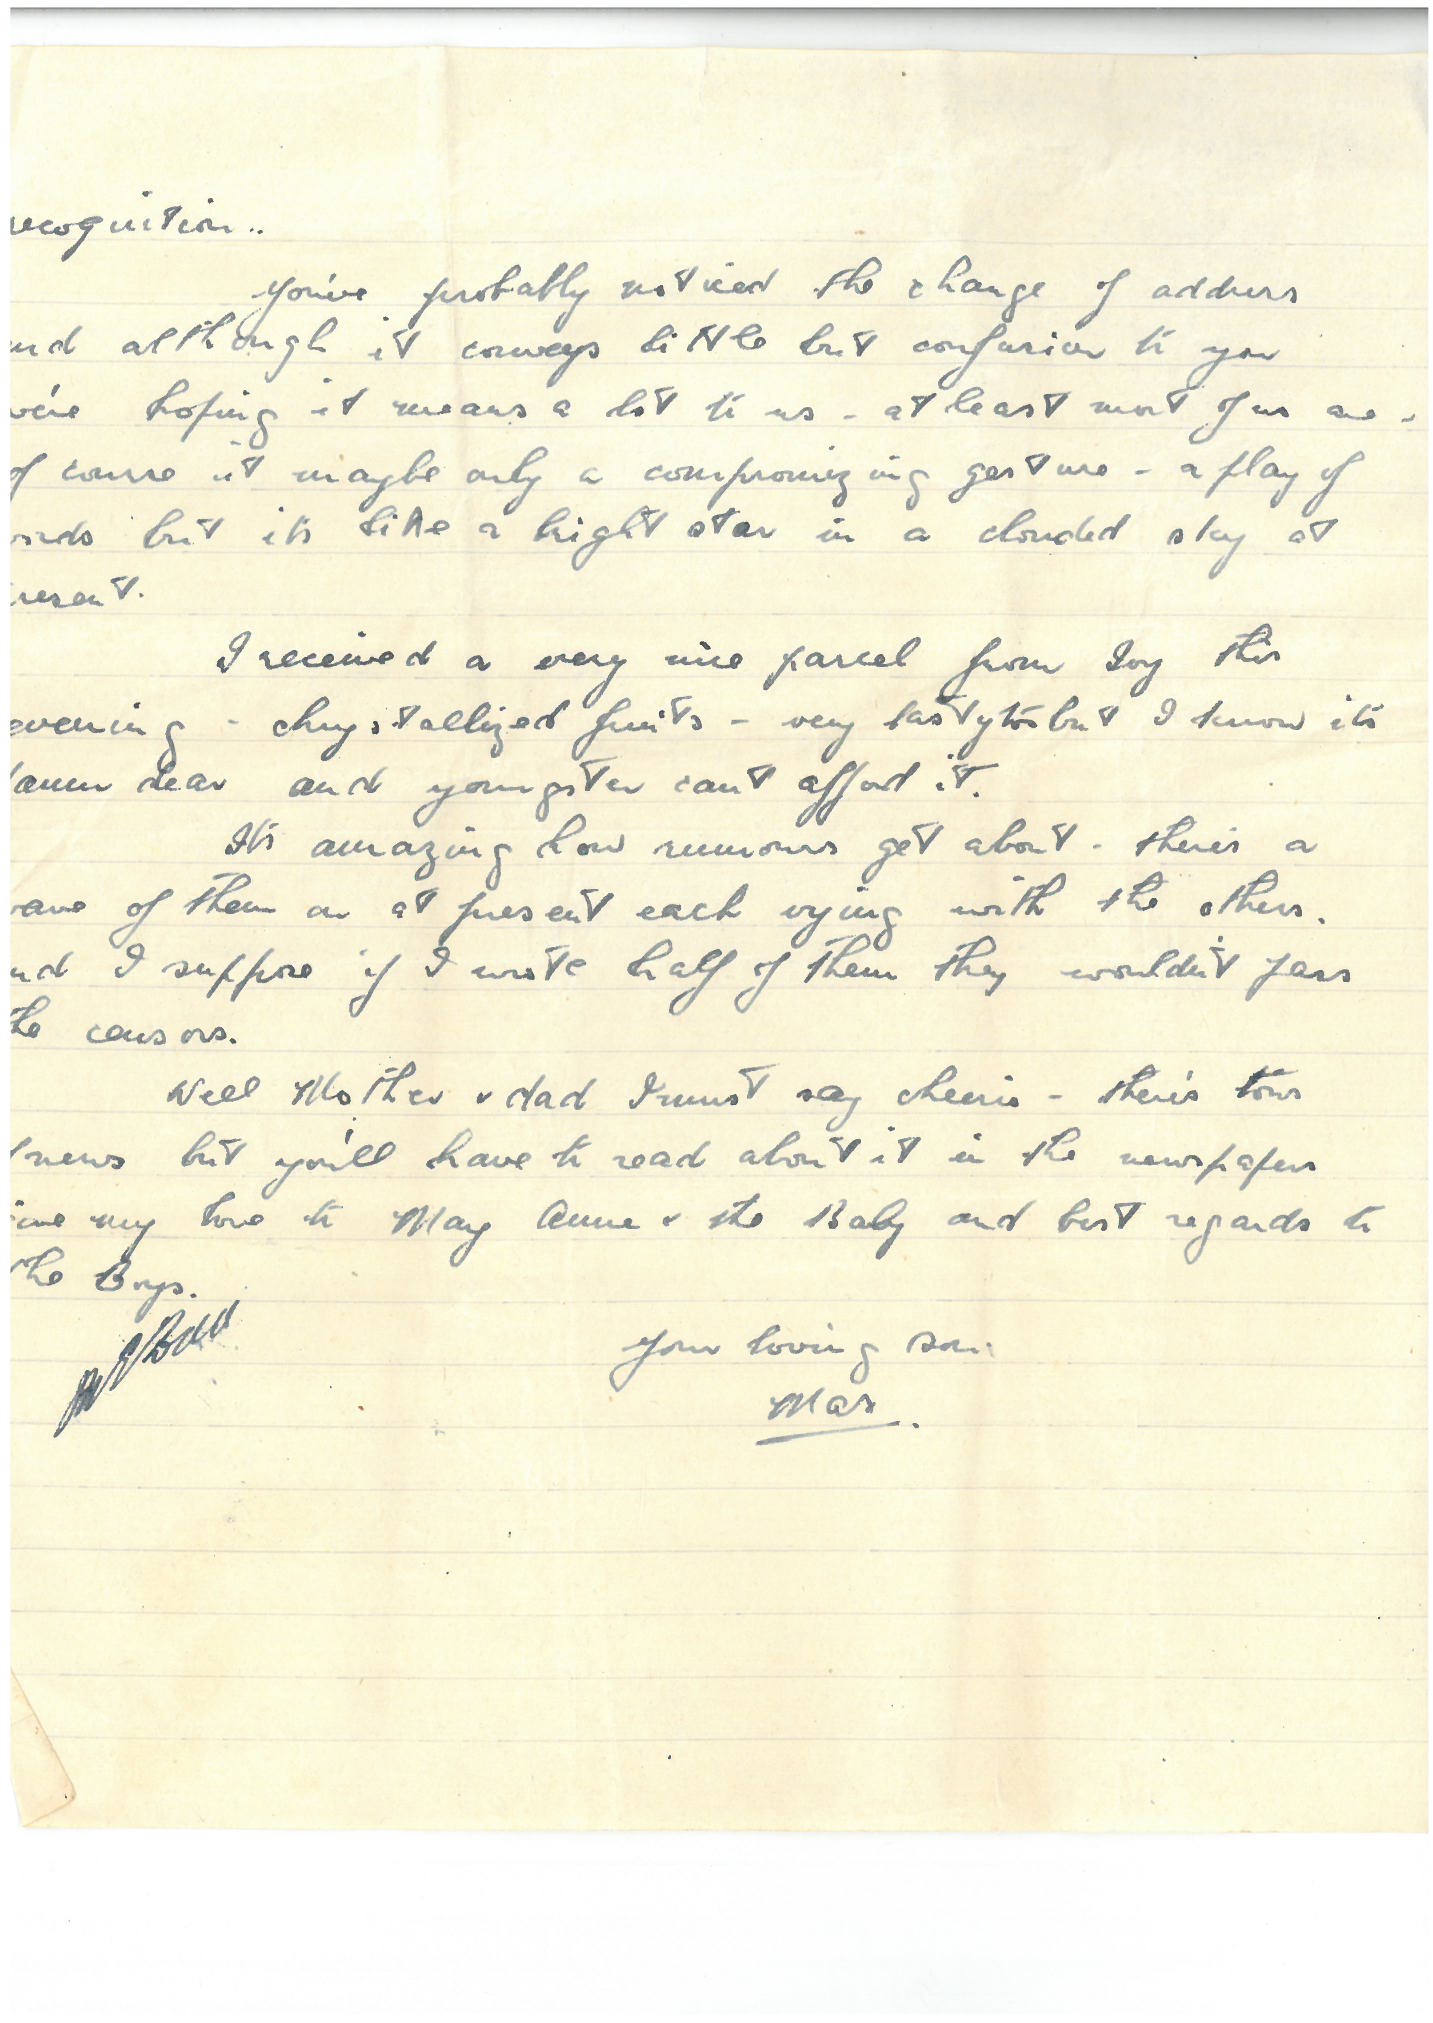 recognition..
You've probably noticed the change of address
and although it conveys little but confusion to you
we're hoping it means a lot to us - at least most of us are -
of course it maybe only a compromizing gesture - a play of
words but it's like a bright star in a clouded sky at
present.
I received a very nice parcel from Ivy this
evening - chrystallized fruits - very tasty too but I know it's
damn dear and youngster can't afford it.
It's amazing how rumours get about - there's a
wave of them on at present each vying with the others.
and I suppose if I wrote half of them they wouldn't pass
the censors.
Well Mother & dad I must say cheerio - there's tons
of news but you'll have to read about it in the newspapers
give my love to May Anne & the Baby and best regards to
the Boys.
Your loving son
Max.